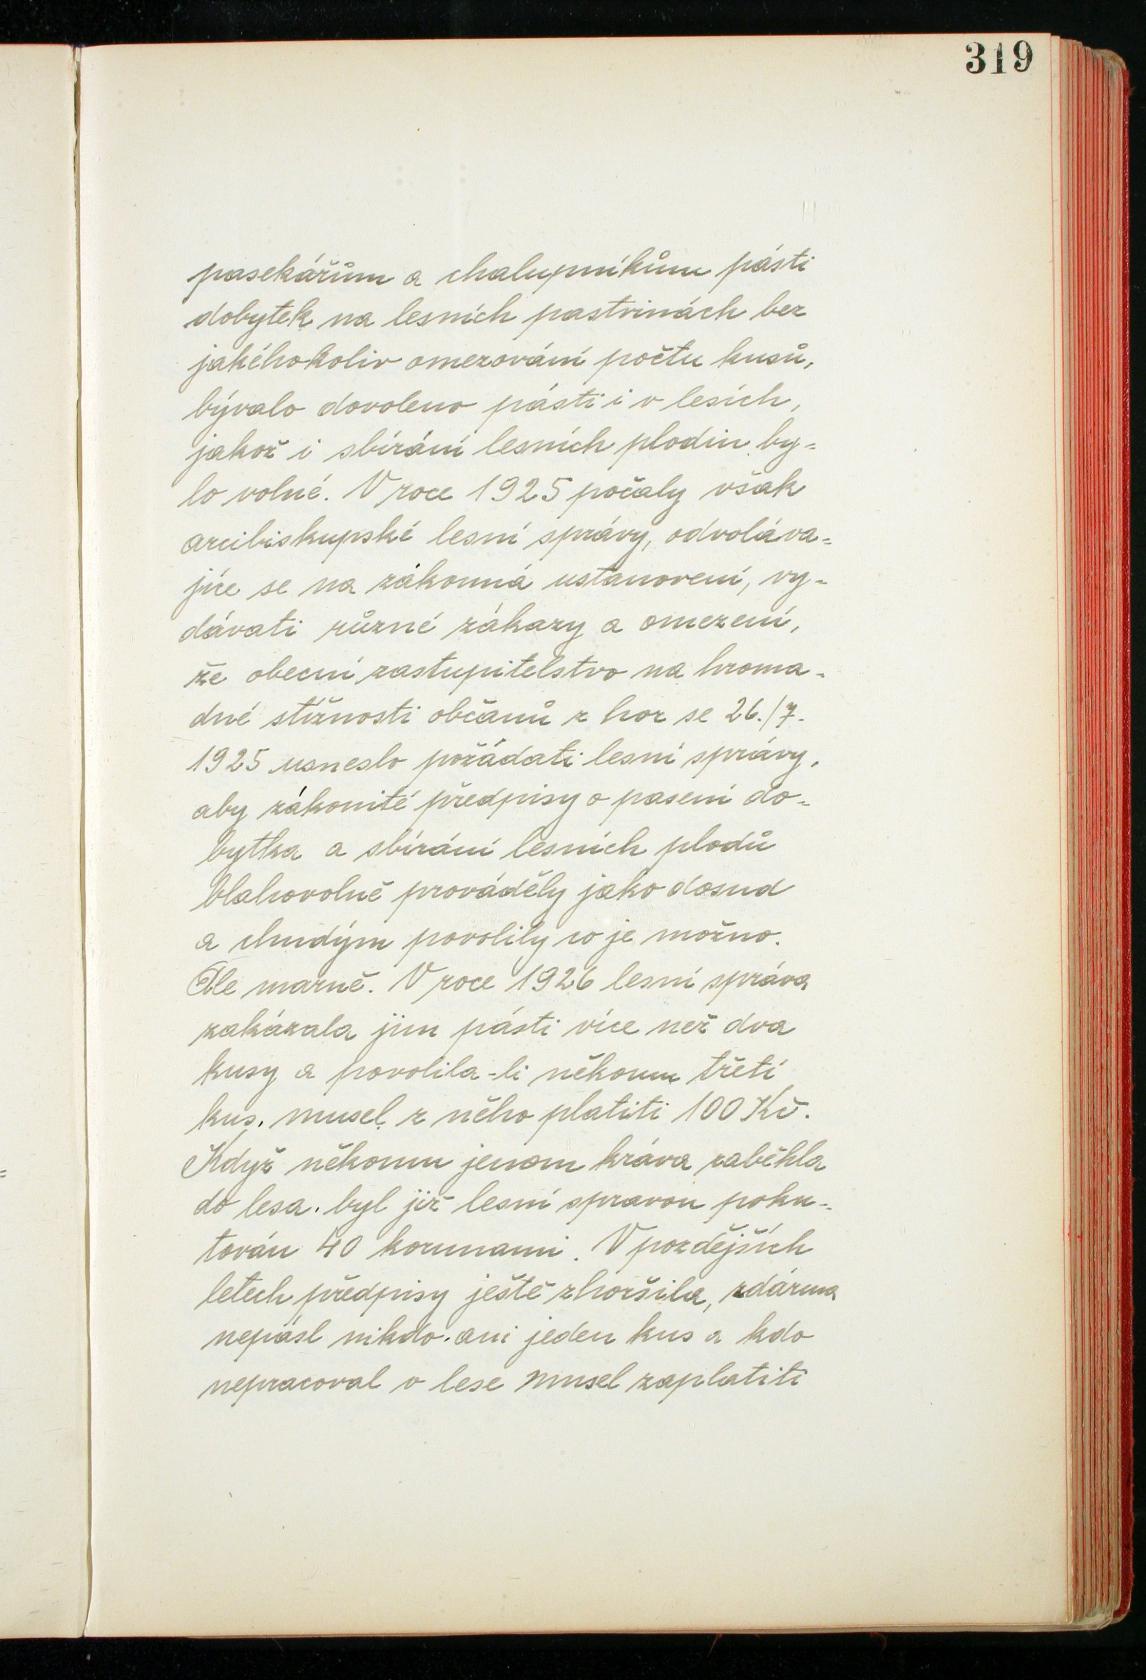 319
pasekářům a chalupníkům pásti
dobytek na lesních pastvinách bez
jakéhokoliv omezování počtu kusů,
bývalo dovoleno pásti i v lesích,
jakož i sbírání lesních plodin by=
lo volné. V roce 1925 počaly však
arcibiskupské lesní správy, odvoláva=
jíce se na zákonná ustanovení, vy-
dávati různé zákazy a omezení,
že obecní zastupitelstvo na hroma-
dné stížnosti občanů z hor se 26./7.
1925 usneslo požádati lesní správy,
aby zákonité předpisy o pasení do-
bytka a sbírání lesních plodů
blahovolně prováděly jako dosud
a chudým povolily co je možno.
Ale marně. V roce 1926 lesní správa
zakázala jim pásti více než dva
kusy a povolila-li někomu třetí
kus, musel z něho platiti 100 Kč.
Když někomu jenom kráva zaběhla
do lesa, byl již lesní spravou poku-
tován 40 korunami. V pozdějších
letech předpisy ještě zhoršila, zdárma
nepásl nikdo ani jeden kus a kdo
nepracoval v lese musel zaplatiti